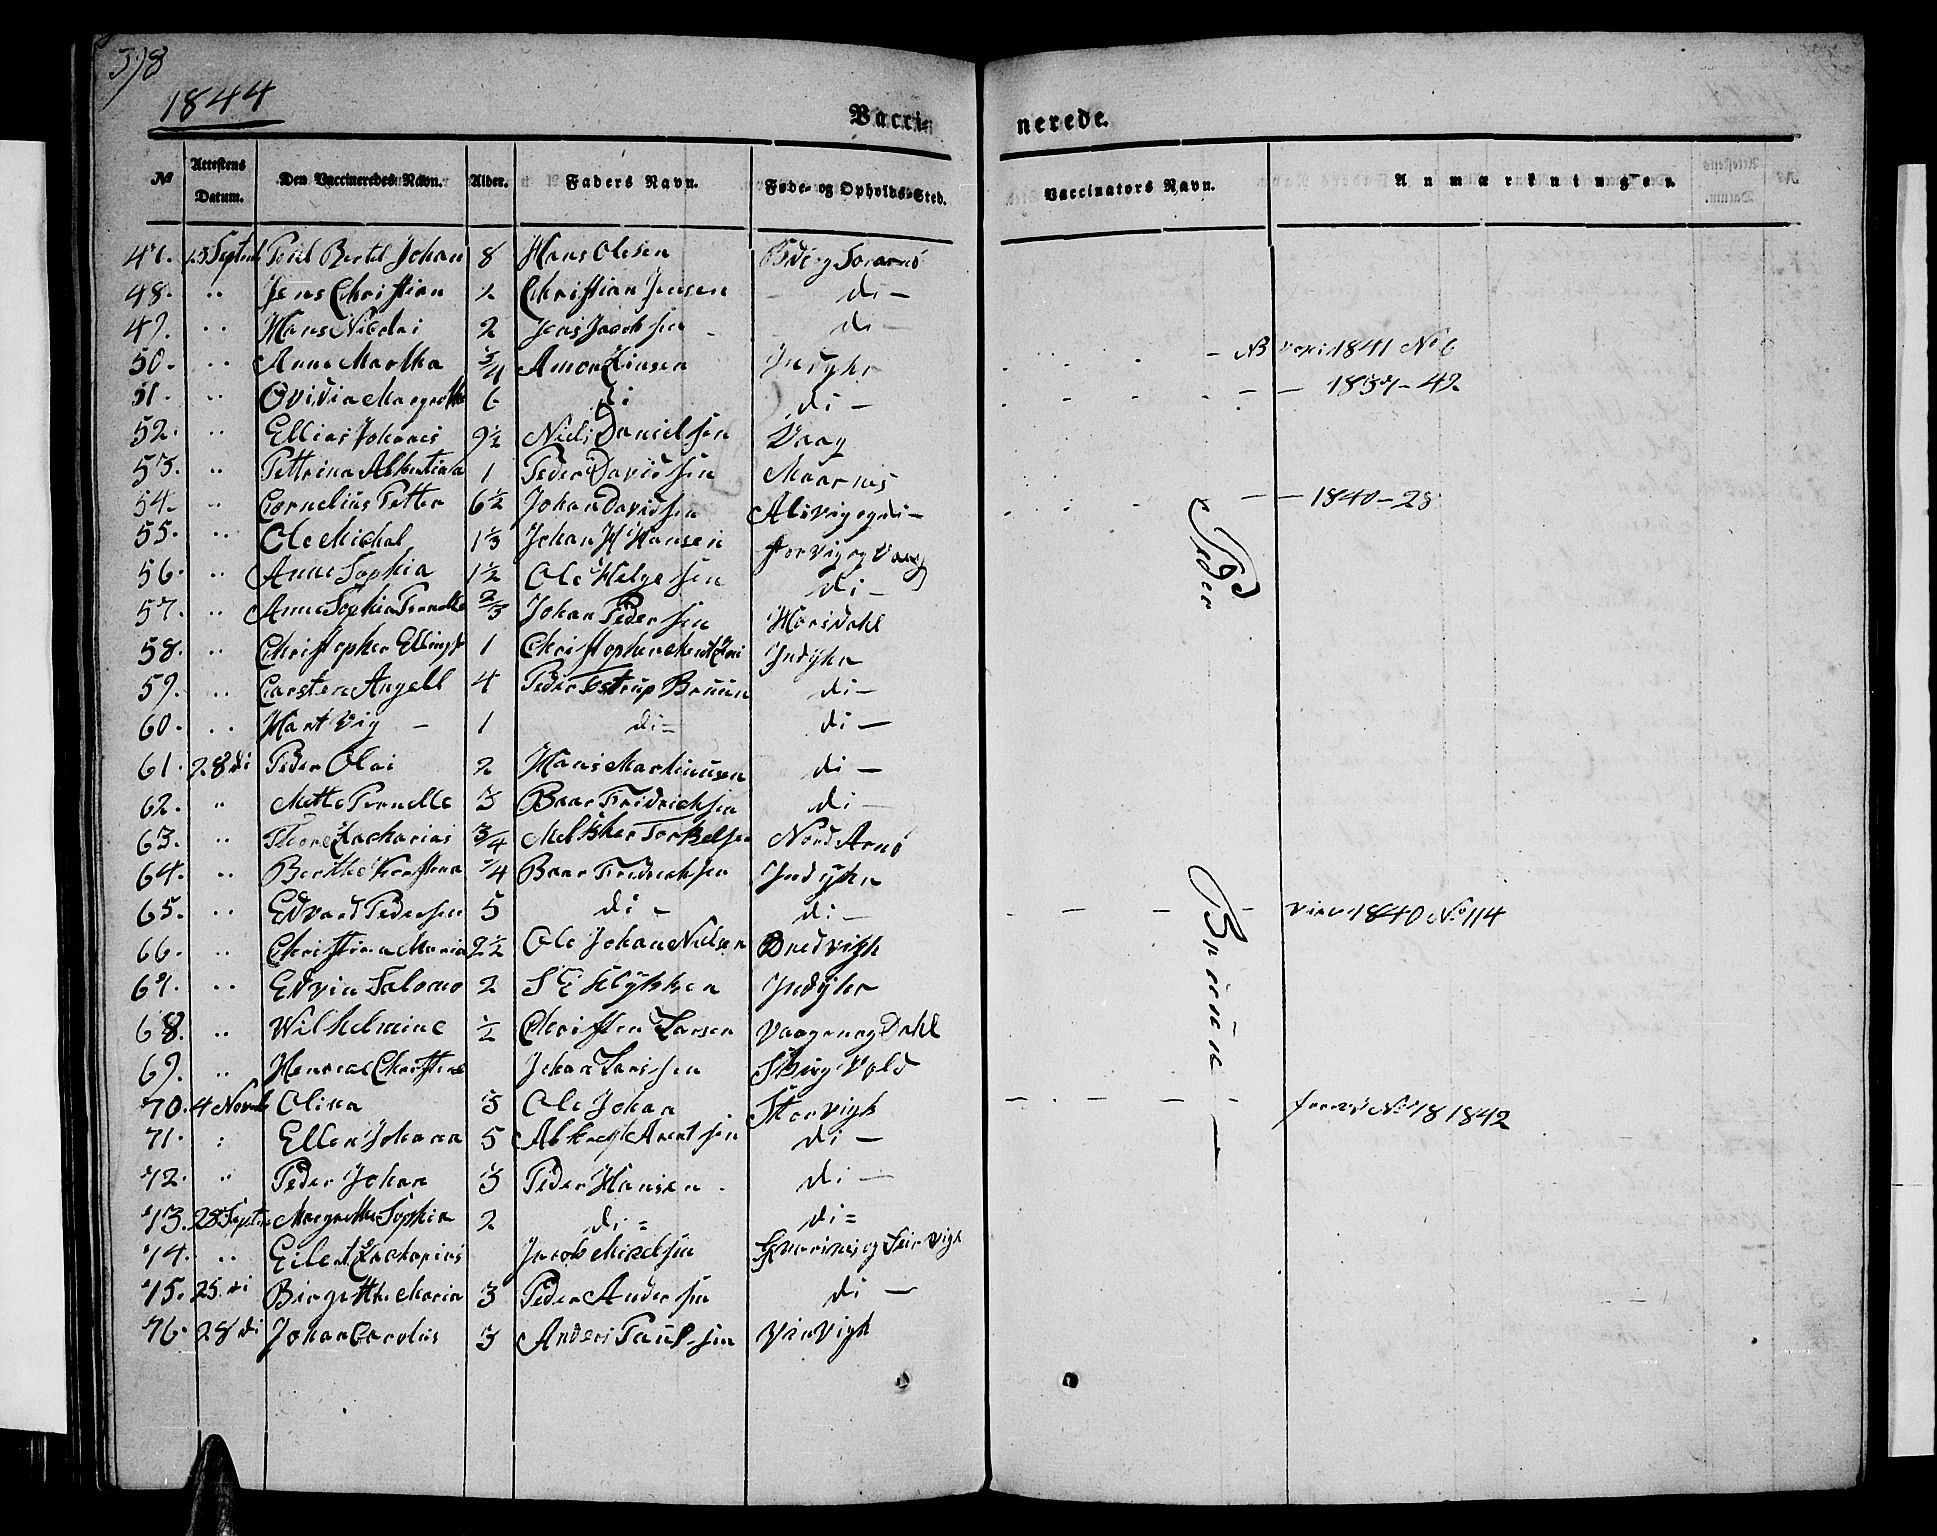 398
1844
Vacci- nerede.
No Attestens Datum. Den Vaccineredes Navn. Alder. Faders Navn. Føde- og Opholds-Sted. Vaccinators Navn. Anmærkninger.
47. 13 Septemb Bertel Johan 8 Hans Olesen
48. " Jens Christian 2 Christian Jensen di -
49. " Hans Nicolai 2 Jens Jacobsen di -
50. " Anne Martha Amon 1841 No 6
51. " Ovidia Margrethe 6 di di - - - 1837 - 42
52. " Ellias Johanes 9½ Niels Danielsen Vaag
53. " Pettrina Albertina 1 Peder Davidsen Maarnes
54. " Cornelius Petter 6½ Johan Davidsen - - 1840 - 28
55. " Ole Michal 1⅓ Johan H Hansen Storvig og Vaag
56. " Anne Sophia 1½ Ole Helgesen di -
57. " Anne Sophia Pernelle ⅔ Johan Pedersen Horsdahl
58. " Christopher Elling 1 Indyhr
59. " Carsten Angell 4 Peder Tstrup Bruun di -
60. " Hartvig - 1 di = di -
61. 28 di Peder Olai 2 Hans Martinusen di -
62. " Mette Pernelle Baar Fridrichsen di -
63. " Thore Zacharias 3/4 Melkher Torkelsen Nord Arnø
64. " Berthe Baar Fridrichsen Indyhr
65. " Edvard Pedersen 5 di - di - - - - - 1840 No 114
66. " Christiana Maria 2½ Ole Johan Nielsen Bredvigh
67. " Edvin Salomo 2 S E Flykken Indyhr
68. " Wilhelmine ½ Christen Larsen Vaagen og Dahl
69. " Johan Larssen
70. 4 Novemb Olina Ole Johan Storvigh - - - - No 78 1842
71. : Ellen Johana 5 Albregt Arentsen di -
72. " Peder Johan Peder Hansen . di -
73. 28 Septem Margrethe Sophia 2 di = di =
74. " Eilert Zacharias Jacob
75. 25. di Birgitthe Maria 3 Peder Andersen di -
76. 28 di Johan Carolus 3 Anders Paulsen Vinvigh
Peder
Bruun -